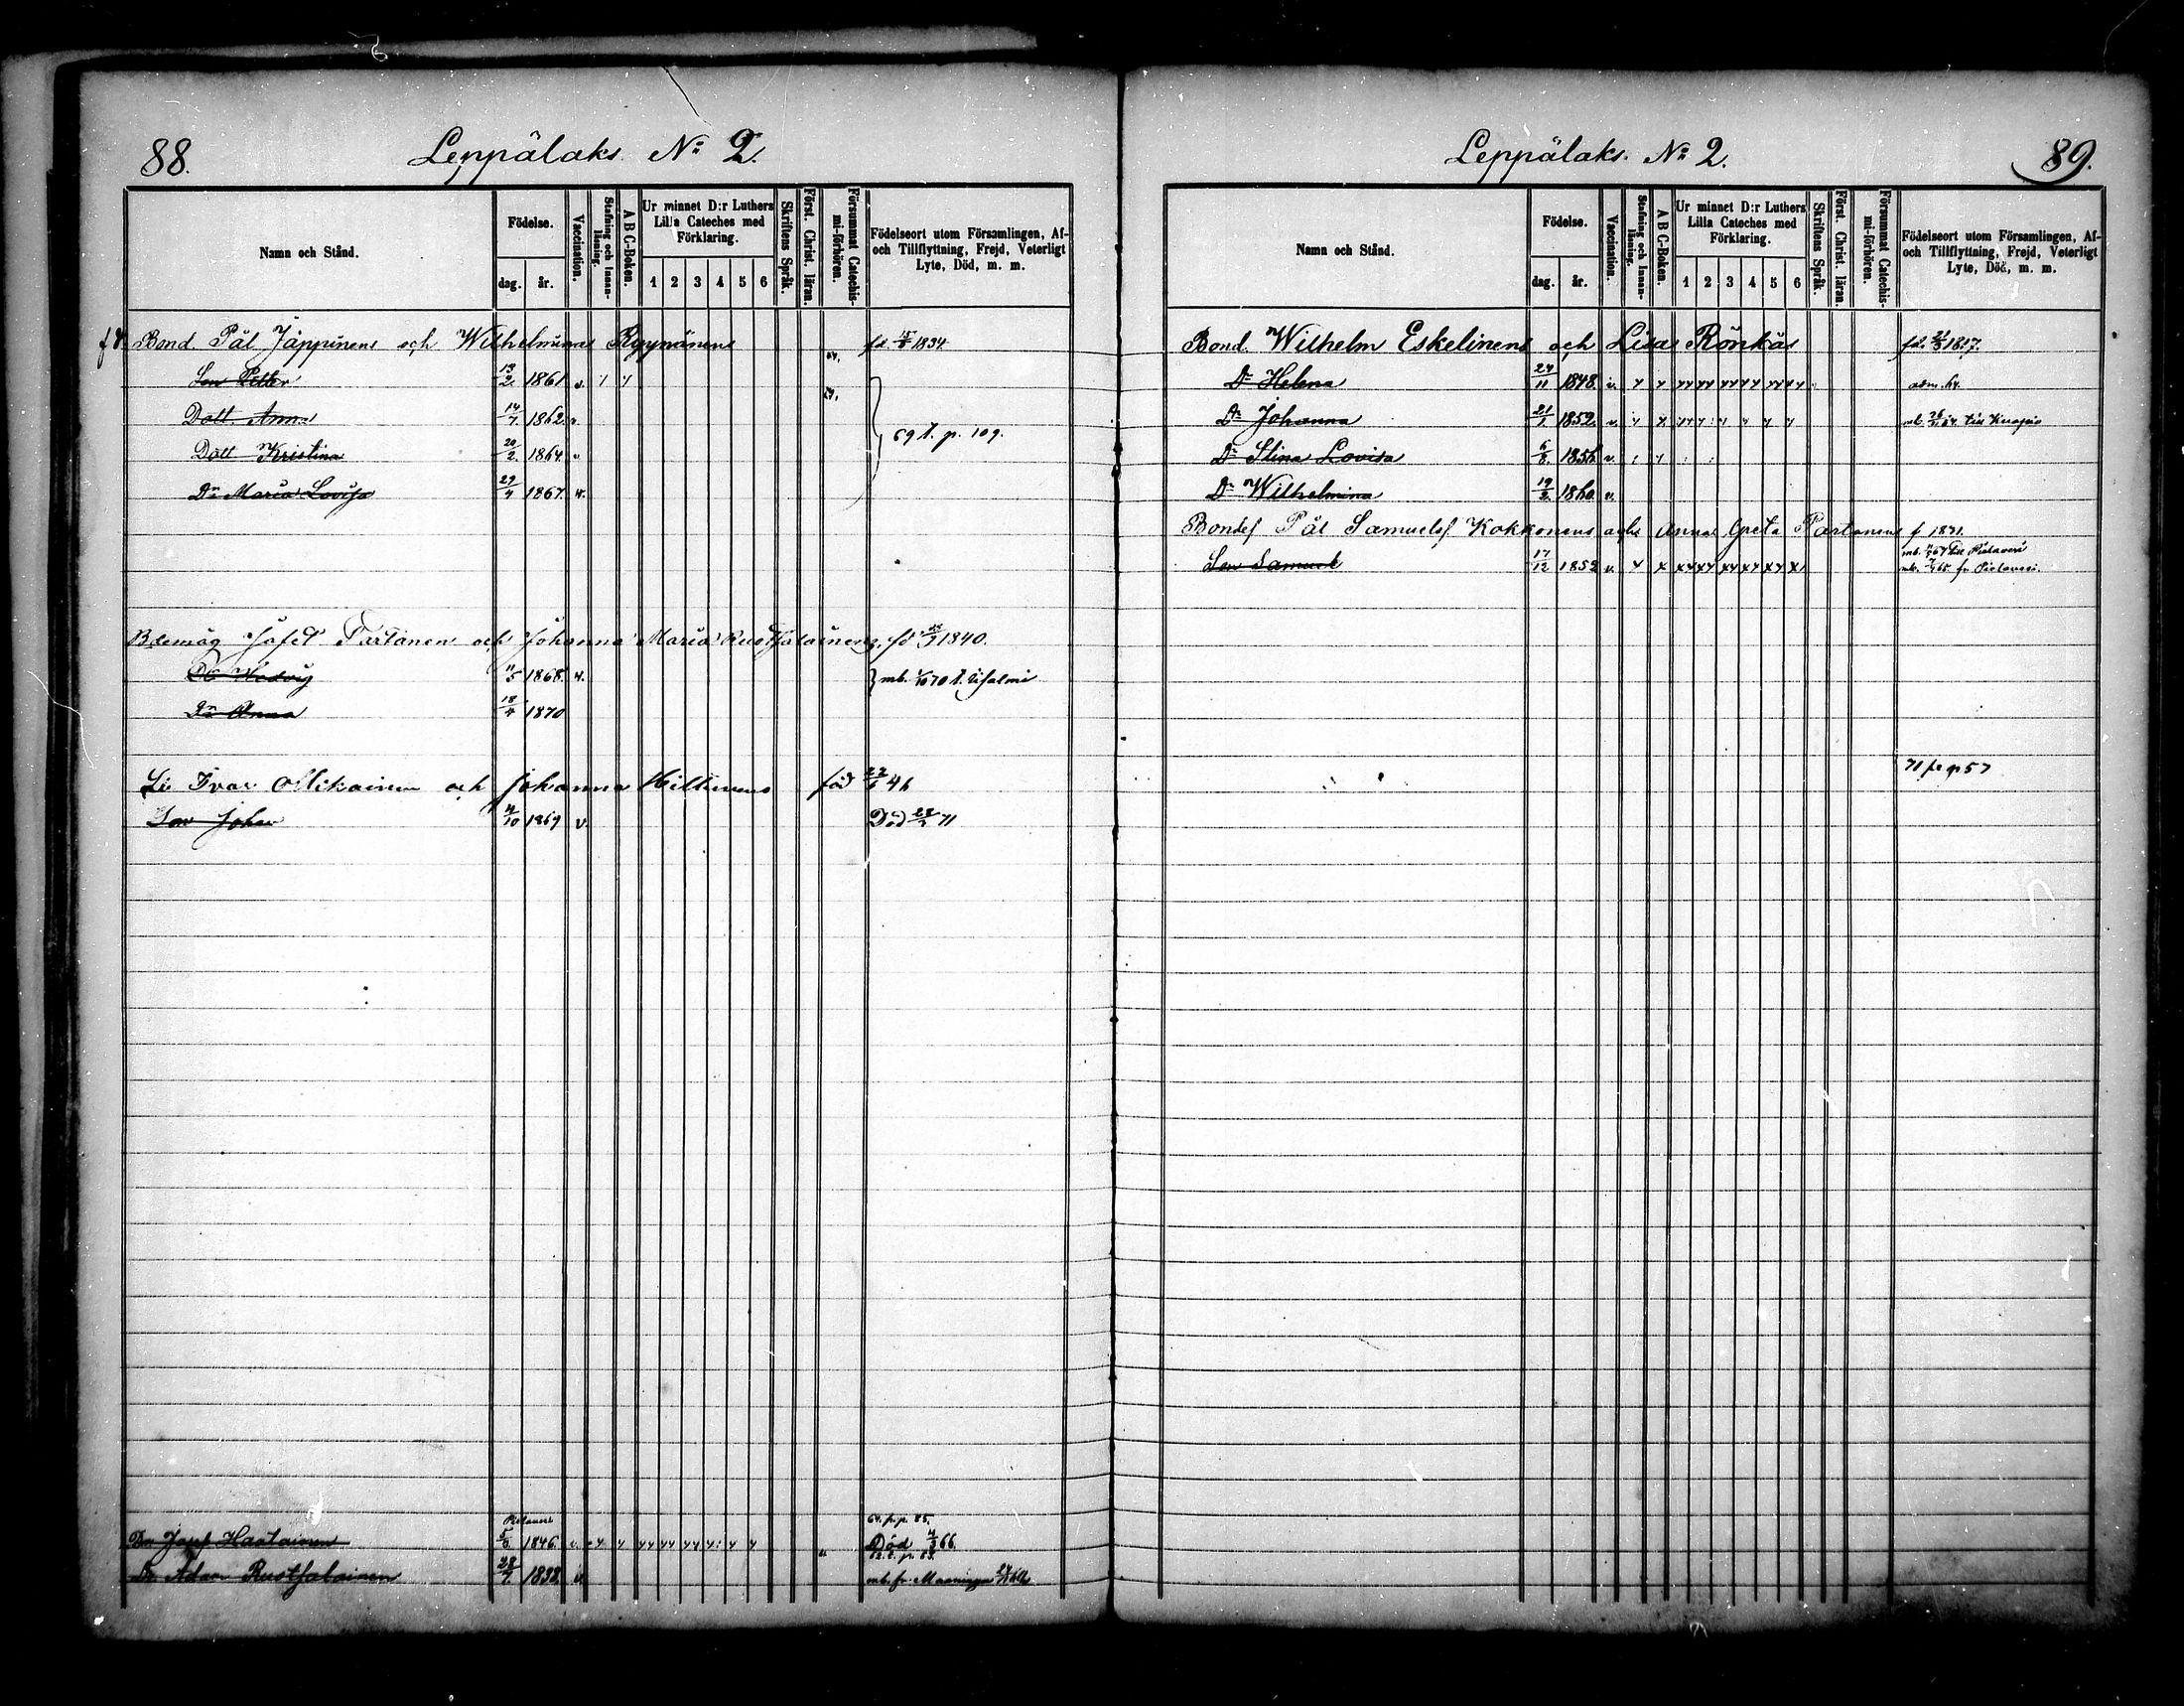 88.
Leppälaks. No 2.
Namn och Stånd.
Födelse.
dag. år.
Vaccination.
Stafning och Innan-läsning.
A B C-Boken.
Ur minnet D:r Luthers Lilla Cateches med Förklaring.
1 2 3 4 5 6
Skriftens Språk.
Först. Christ. läran.
Försummat Catechis-mi-förhören.
Födelseort utom Församlingen, Af- och Tillflyttning, Frejd, Veterligt Lyte, Död, m. m.
Bond. Pål Jäppinens och Wilhelmina Ryynänens fd. 1834.
Son Petter 13/2 1861 v.
Dott Anna 14/7 1862 v.
Dott Kristina 20/2 1864 v
69 t. p. 109.
Dr Maria Lovisa 29/4 1867. v.
Bdemåg Jafet Tartanen och Johanna Maria Rustfalainens, fd 1840.
Dr Hedvig 11/5 1868. v.
mb. 1/10 70 t. Iisalmi
Dr Anna 18/4 1870
Li Ivar Ollikainen och Johanna Hiltunens född
Son Johan 4/10 1869 v.
Död 71
Pielavesi
64. fr. p. 85.
Dr Josef Haatainen 5/6 1846. v. Död 4/3 66.
62. t. p. 83.
Dr Adam Rustfalainen 28/7. 1838. v. mb. fr. Maaninga
Leppälaks. No 2.
89.
Namn och Stånd.
Födelse.
dag. år.
Vaccination.
Stafning och Innan-läsning.
A B C-Boken.
Ur minnet D:r Luthers Lilla Cateches med Förklaring.
1 2 3 4 5 6
Skriftens Språk.
Först. Christ. läran.
Försummat Catechis-mi-förhören.
Födelseort utom Församlingen, Af- och Tillflyttning, Frejd, Veterligt Lyte, Död, m. m.
Bond. Wilhelm Eskelinens och Lisa Rönkäs fd. 1817.
Dr Helena 24/11 1848. v. adm. 64.
Dr Johanna 21/1 1852. v. mb. 64. till Kuopio
Dr Stina Lovisa 6/8. 1856. v.
Dr Wilhelmina 19/3 1860. v.
Bondes Pål Samuelsf Kokkonens och Anna Greta Partanens f 1831.
mb. 64 till Pielavesi
Son Samuel 17/12 1852 v. mb. 65. fr. Pielavesi.
71 fr p 57